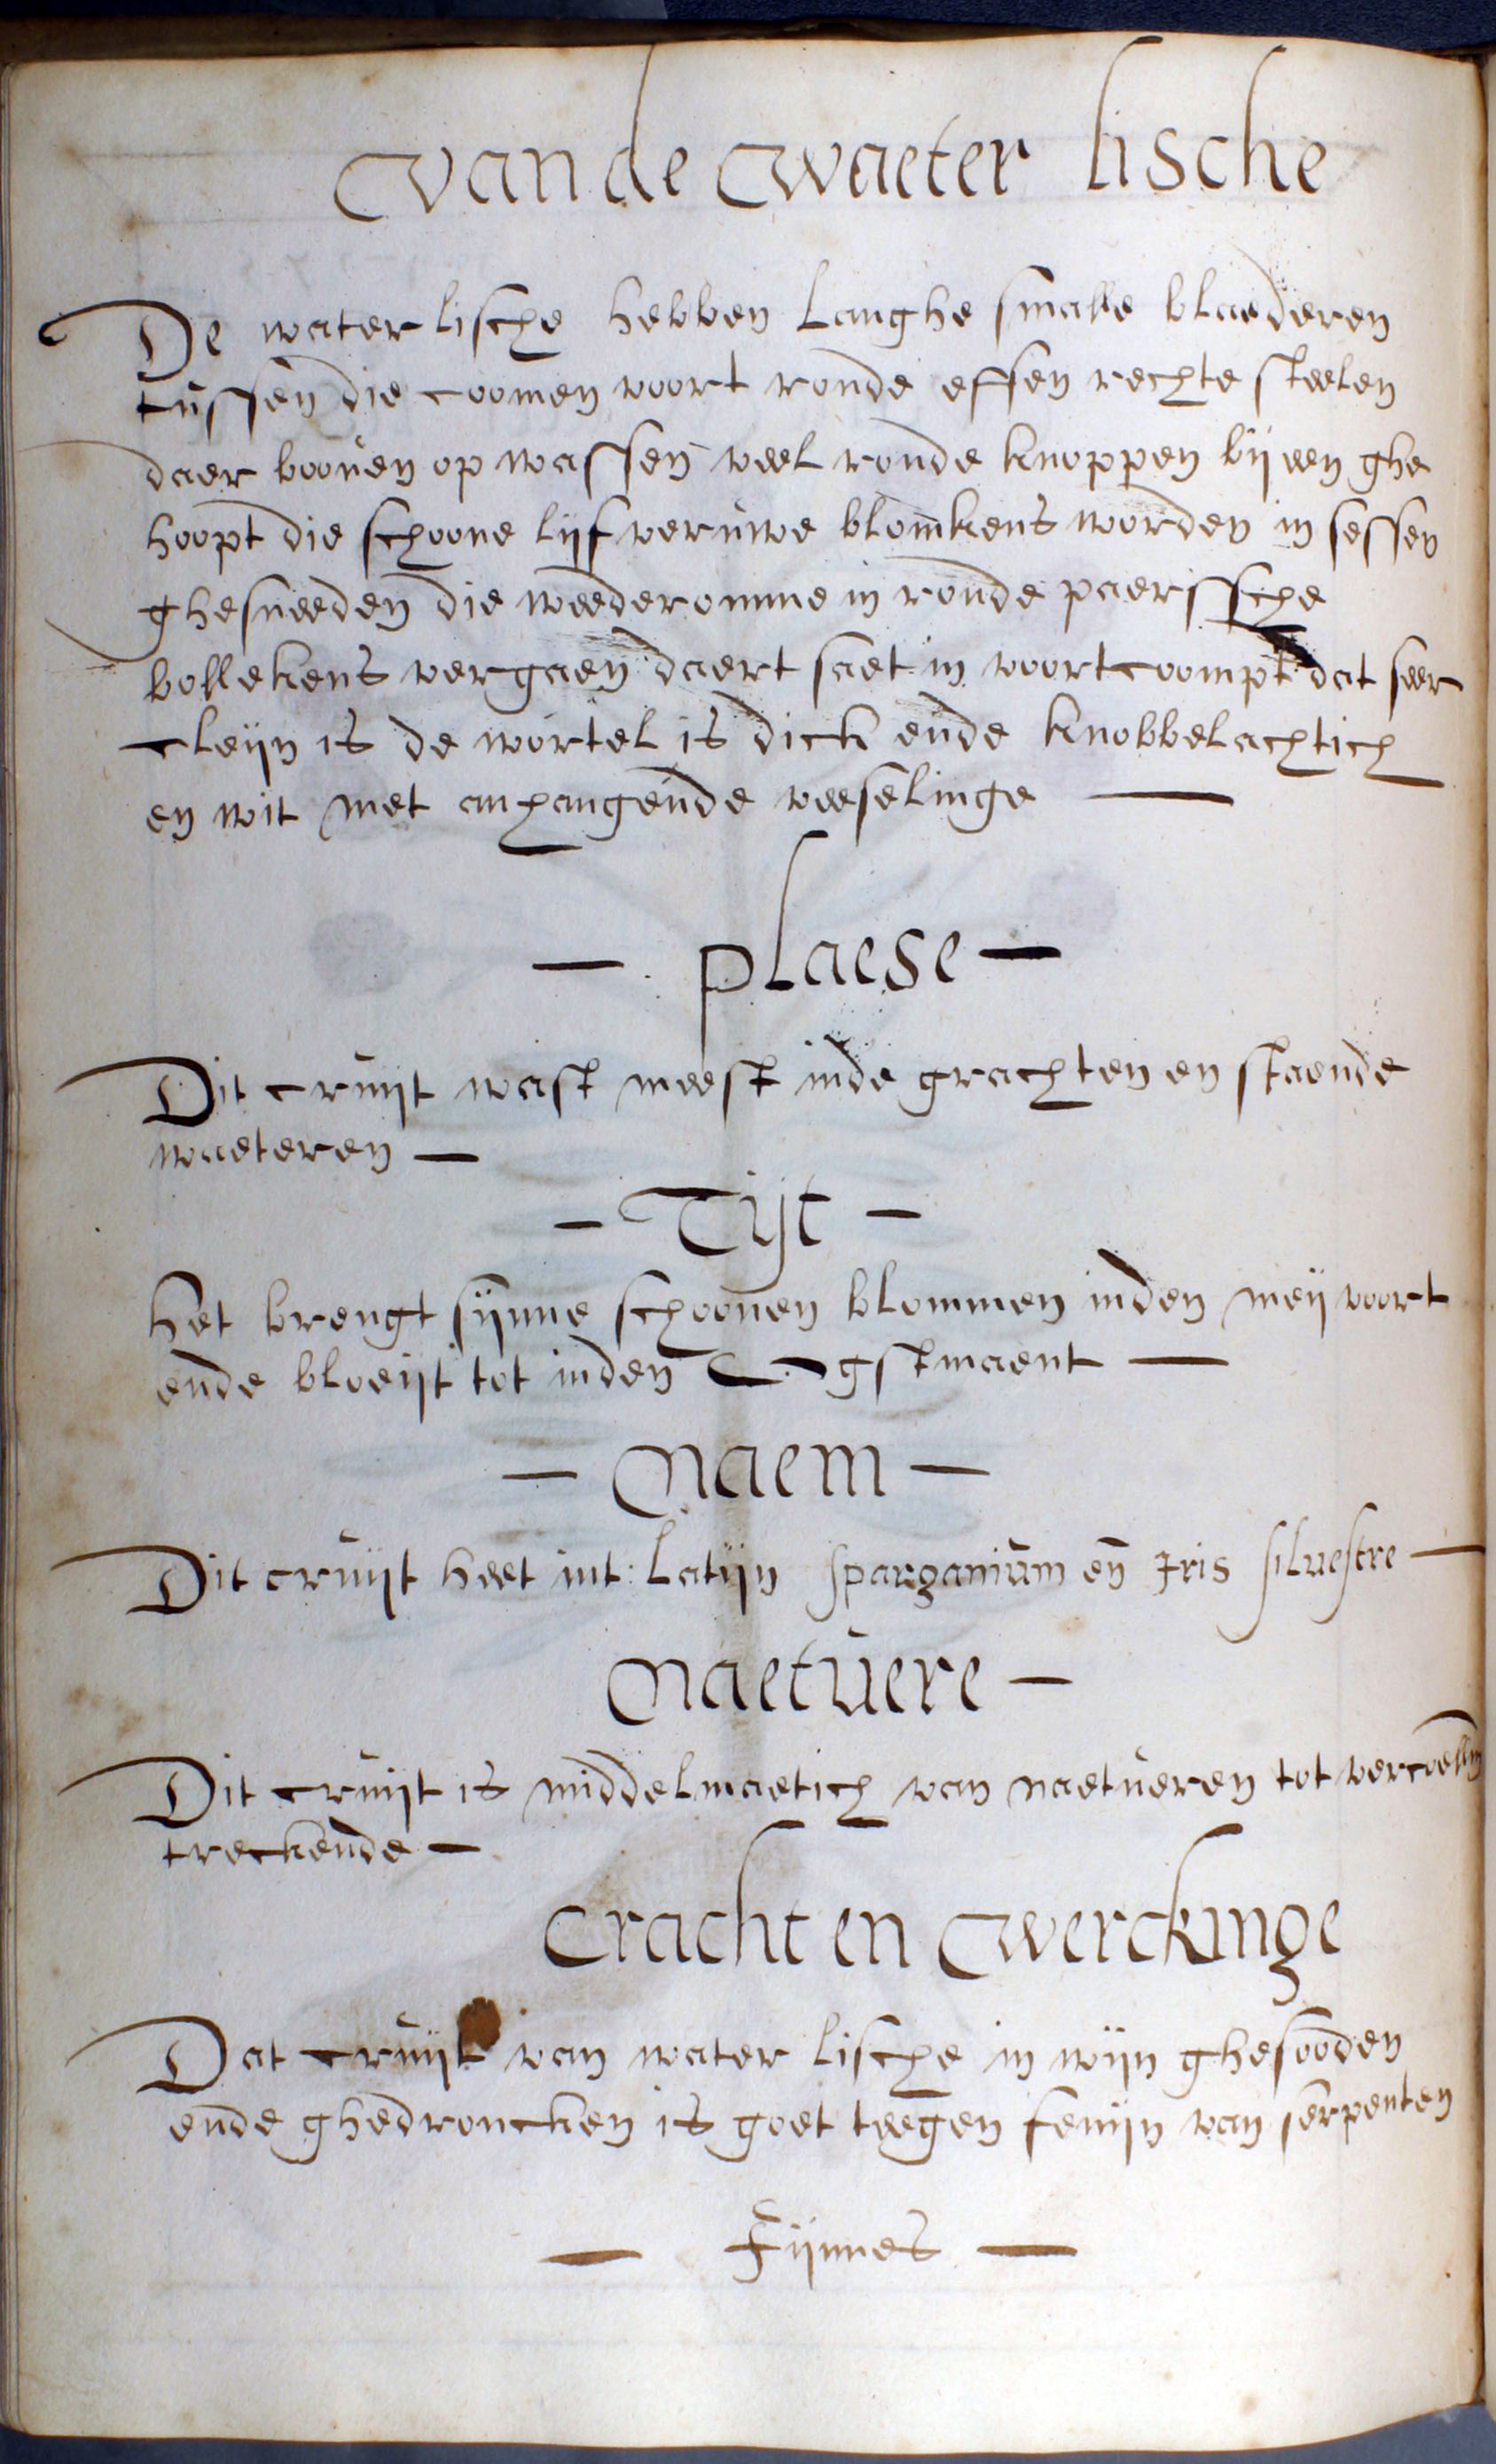 van de waeter lische
De water lische hebben langhe smalle blaederen
tussen die coomen voort ronde effen rechte steelen
daer booven op wassen veel ronde knoppen bij een ghe
hoopt die schoone lijfveruwe blomkens worden in sessen
ghesneeden die weederomme in ronde paerssche
bollekens vergaen daert saet in voort coompt dat seer
cleijn is de wortel is dick ende knobbelachtich
en wit met anhangende veeselinge —
— plaese —
Dit cruijt wast meest inde grachten en staende
waeteren —
— Tijt —
het brengt sijnne schoonen blommen inden meij voort
ende bloeijt tot inden Ougstmaent —
— Naem —
Dit cruijt heet int: Latijn sparganium en Iris silvestre —
Naetuere —
Dit cruijt is middelmaetich van naetueren tot vercoellin
treckende —
Cracht en werckinge
Dat cruijt van water lische in wijn ghesooden
ende ghedroncken is goet teegen fenijn van serpenten
— Fijnnes —